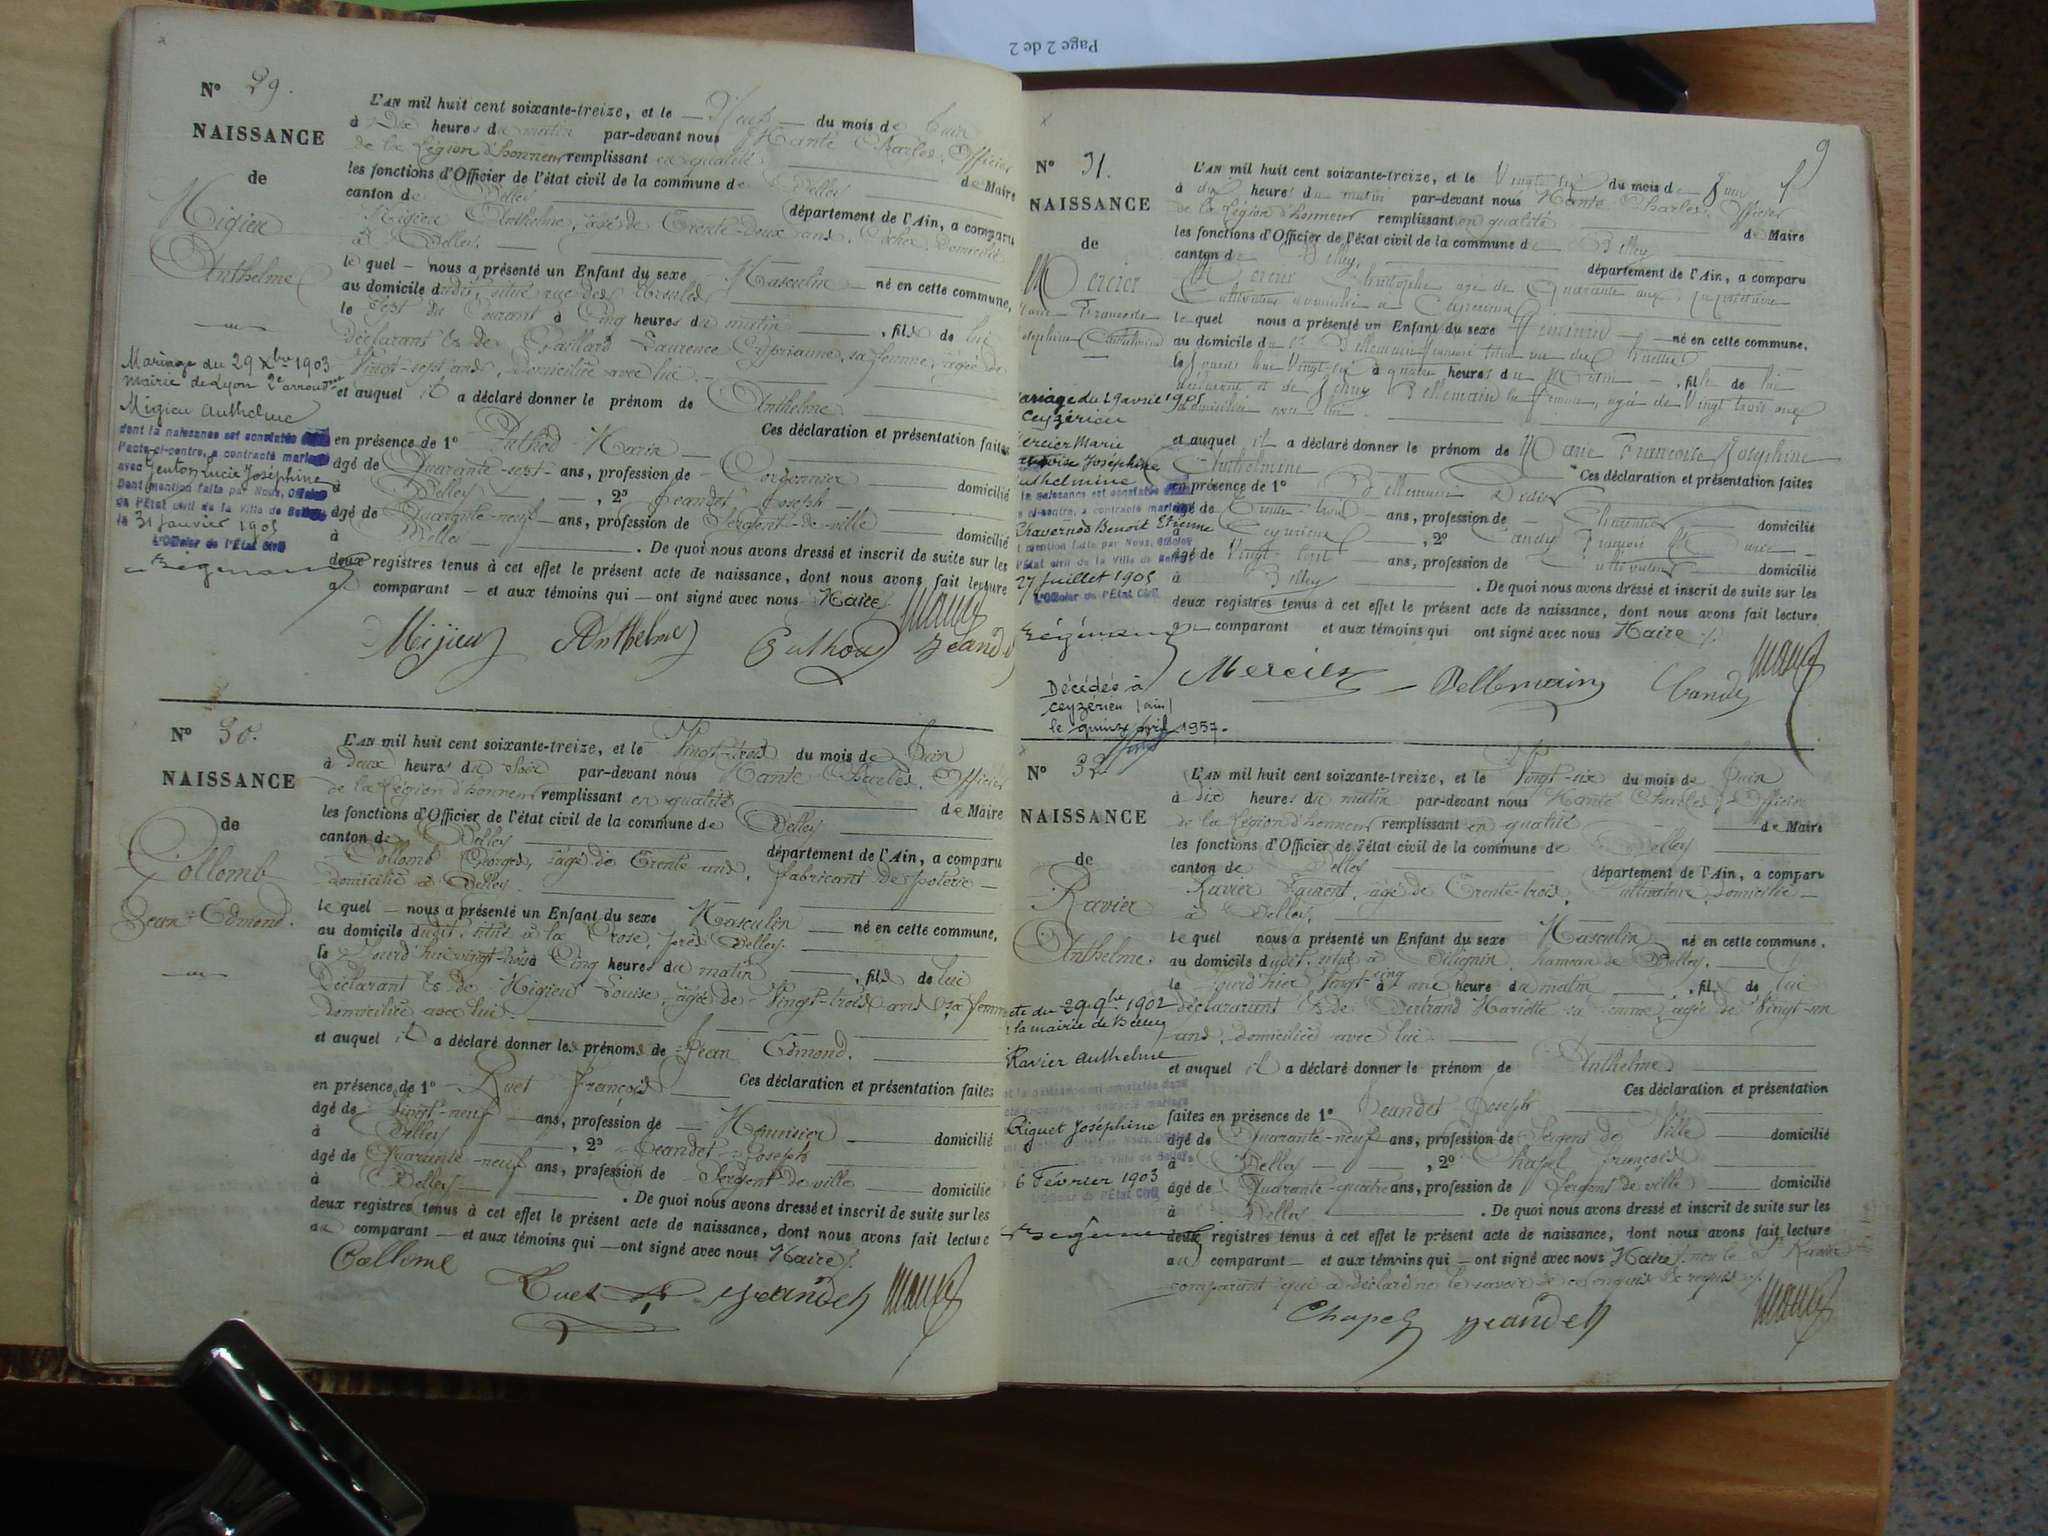 Page 2 de 2
N° 29.
NAISSANCE
de
Migieu
Anthelme
Mariage du 29 Xbre 1903
mairie de Lyon 2e arrondt
Migieu Anthelme
dont la naissance est constatée
l'acte ci-contre, a contracté mariage
avec Genton Lucie Joséphine
Dont mention faite par Nous, Officier
de l'État civil de la Ville de Belley
le 31 Janvier 1905
L'Officier de l'État Civil
L'AN mil huit cent soixante-treize, et le Neuf du mois de Juin
à Dix heures du matin par-devant nous Manté Charles, Officier
de la Légion d'honneur remplissant en qualité de Maire
les fonctions d'Officier de l'état civil de la commune de Belley
canton de Belley département de l'Ain, a comparu
Migieu Anthelme, âgé de Trente-Deux ans, Cocher, Domicilié
à Belley.
le quel nous a présenté un Enfant du sexe Masculin né en cette commune,
au domicile dudit, situé rue des Ursules
le Sept du Courant à Cinq heures du matin, fils de lui
déclarant & de Gaillard Laurence Cyprianne, sa femme, âgée de
Vingt-sept ans, Domiciliée avec lui.
et auquel il a déclaré donner le prénom de Anthelme
Ces déclaration et présentation faites
en présence de 1° Marin
âgé de Quarante-sept ans, profession de Cordonnier domicilié
à Belley, 2° Jeandet Joseph
âgé de Quarante-neuf ans, profession de Sergent-de-ville domicilié
à Belley. De quoi nous avons dressé et inscrit de suite sur les
deux registres tenus à cet effet le présent acte de naissance, dont nous avons fait lecture
au comparant et aux témoins qui ont signé avec nous Maire.
Mijieu Anthelme
N° 30.
NAISSANCE
de
Collomb
Jean-Edmond.
L'AN mil huit cent soixante-treize, et le Vingt-trois du mois de Juin
à Deux heures du soir par-devant nous Manté Charles, Officier
de la Légion d'honneur remplissant en qualité de Maire
les fonctions d'Officier de l'état civil de la commune de Belley
canton de Belley département de l'Ain, a comparu
Collomb Georges, âgé de Trente ans, fabricant de poterie
domicilié à Belley.
le quel nous a présenté un Enfant du sexe Masculin né en cette commune,
au domicile dudit, situé à la Rose, près Belley.
le Jourd'hui vingt-trois à Cinq heures du matin, fils de lui
Déclarant & de Migieu Louise, âgée de Vingt-trois ans sa femme
domiciliée avec lui.
et auquel il a déclaré donner les prénoms de Jean Edmond.
Ces déclaration et présentation faites
en présence de 1° Ruet François
âgé de Vingt-neuf ans, profession de Menuisier domicilié
à Belley, 2° Jeandet Joseph
âgé de Quarante-neuf ans, profession de Sergent de ville domicilié
à Belley. De quoi nous avons dressé et inscrit de suite sur les
deux registres tenus à cet effet le présent acte de naissance, dont nous avons fait lecture
au comparant et aux témoins qui ont signé avec nous Maire.
Ruet Jeandet
9
N° 31.
NAISSANCE
de
Mercier
Marie Françoise
Joséphine Anthelmine
Mariage du 29 avril 1905
Ceyzérieu
Mercier Marie
Françoise Joséphine
Anthelmine
Chavernod Benoit Etienne
27 Juillet 1905
L'Officier de l'État Civil
Décédée à
Ceyzérieu (Ain)
le quinze avril 1957.
L'AN mil huit cent soixante-treize, et le Vingt six du mois de Juin
à dix heures du matin par-devant nous Manté Charles, Officier
de la légion d'honneur remplissant en qualité de Maire
les fonctions d'Officier de l'état civil de la commune de Belley
canton de Belley, département de l'Ain, a comparu
Mercier Christophe âgé de Quarante ans
Cultivateur domicilié à Ceyzérieu
le quel nous a présenté un Enfant du sexe féminin né en cette commune,
au domicile du Sr Bellemain
heures du matin, fille de lui
déclarant et de Jenny Bellemain sa femme, âgée de Vingt trois ans
domiciliée avec lui.
et auquel il a déclaré donner le prénom de Marie Françoise Joséphine
Anthelmine Ces déclaration et présentation faites
en présence de 1° Bellemain Didier
âgé de Trente-trois ans, profession de Charretier domicilié
à Ceyzérieu, 2° Candy François
âgé de Vingt-huit ans, profession de Cultivateur domicilié
à Belley. De quoi nous avons dressé et inscrit de suite sur les
deux registres tenus à cet effet le présent acte de naissance, dont nous avons fait lecture
au comparant et aux témoins qui ont signé avec nous Maire
Mercier Bellemain Candy
N° 32
NAISSANCE
de
Ravier
Anthelme.
acte du 29 9bre 1902
à la mairie de Belley
Ravier Anthelme
Riguet Joséphine
6 Février 1903
L'Officier de l'État Civil
L'AN mil huit cent soixante-treize, et le Vingt-six du mois de Juin
à Dix heures du matin par-devant nous Manté Charles, Officier
de la Légion d'honneur remplissant en qualité de Maire
les fonctions d'Officier de l'état civil de la commune de Belley
canton de Belley département de l'Ain, a comparu
Ravier Laurent, âgé de Trente-trois, Cultivateur, domicilié
à Belley.
le quel nous a présenté un Enfant du sexe Masculin né en cette commune,
au domicile dudit, situé à Billignin hameau de Belley.
le Jourd'hier Vingt-cinq à une heure du matin, fils de lui
déclarant & de Bertrand Mariette sa femme, âgée de Vingt-un
ans, domiciliée avec lui.
et auquel il a déclaré donner le prénom de Anthelme
Ces déclaration et présentation
faites en présence de 1° Jeandet Joseph
âgé de Quarante-neuf ans, profession de Sergent de Ville domicilié
à Belley, 2° Chapel François
âgé de Quarante-quatre ans, profession de Sergent de ville domicilié
à Belley. De quoi nous avons dressé et inscrit de suite sur les
deux registres tenus à cet effet le présent acte de naissance, dont nous avons fait lecture
au comparant et aux témoins qui ont signé avec nous Maire, non le Sr Ravier
comparant qui a déclaré ne le savoir de ce enquis & requis.
Chapel Jeandet